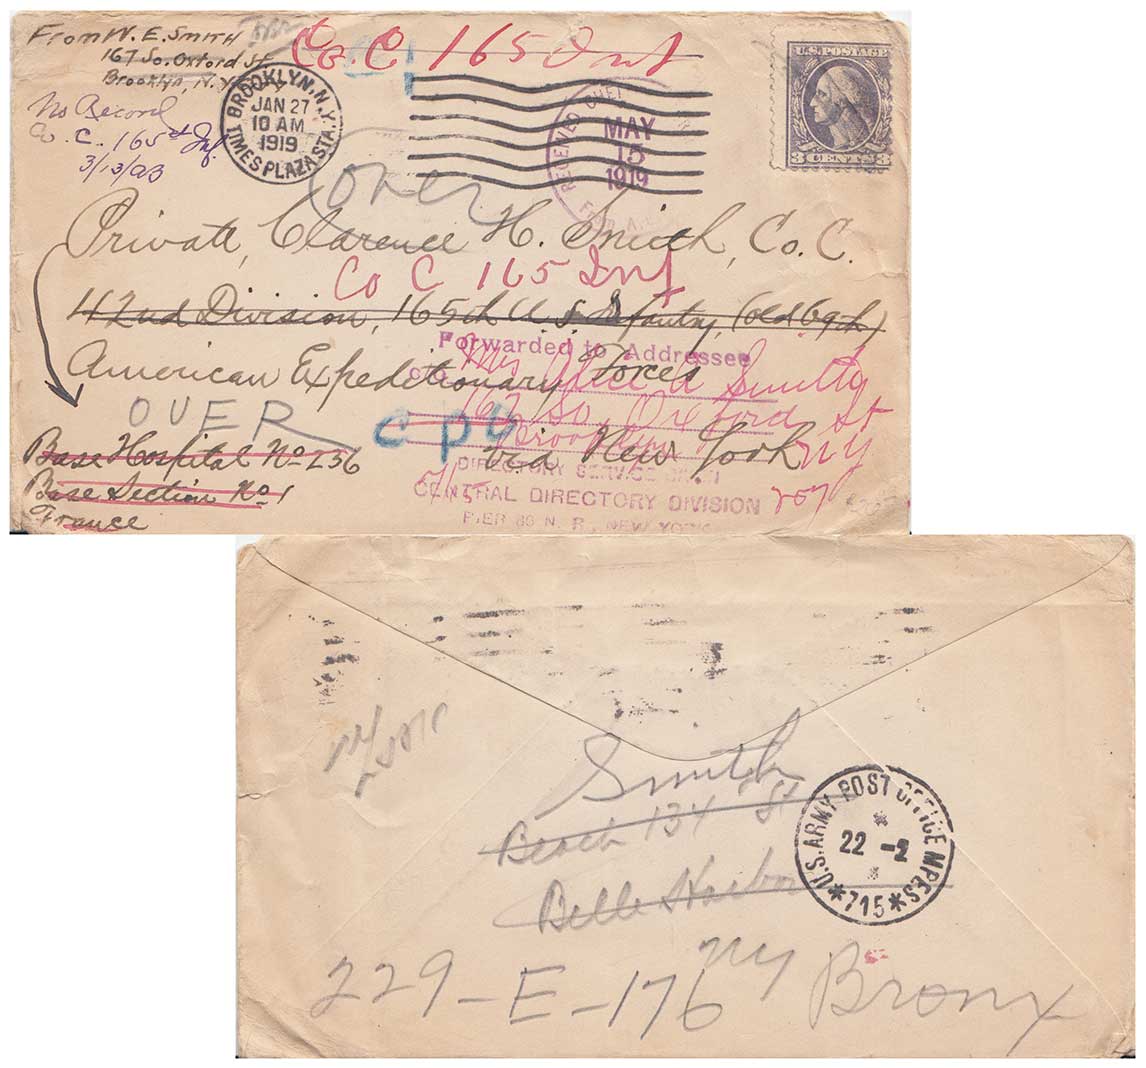 From W. E. Smith
167 So. Oxford St
Brooklyn, N. Y.
Co. C 165 Inf
No Record
Co. C. 165th Inf.
3/13/
BROOKLYN, N.Y.
JAN 27
10 AM
1919
TIMES PLAZA STA.
RECEIVED
MAY
15
1919
From A.
U.S. POSTAGE
3 CENTS 3
over
Private, Clarence H. Smith, Co. C.
Co C 165 Inf
42nd Division, 165th U.S. Infantry, (old 69th)
Forwarded to Addressee
American Expeditionary Forces
Mrs Alice A Smith
167 So. Oxford St
Brooklyn NY
OVER
via New York
Base Hospital No 236
Base Section No 1
France
5/15
DIRECTORY SERVICE
CENTRAL DIRECTORY DIVISION
PIER 86 N. R., NEW YORK
Smith
Beach 134 St
Belle Harbor
NY
229-E-176 Bronx
U.S. ARMY POST OFFICE MPES
22 -2
*715*